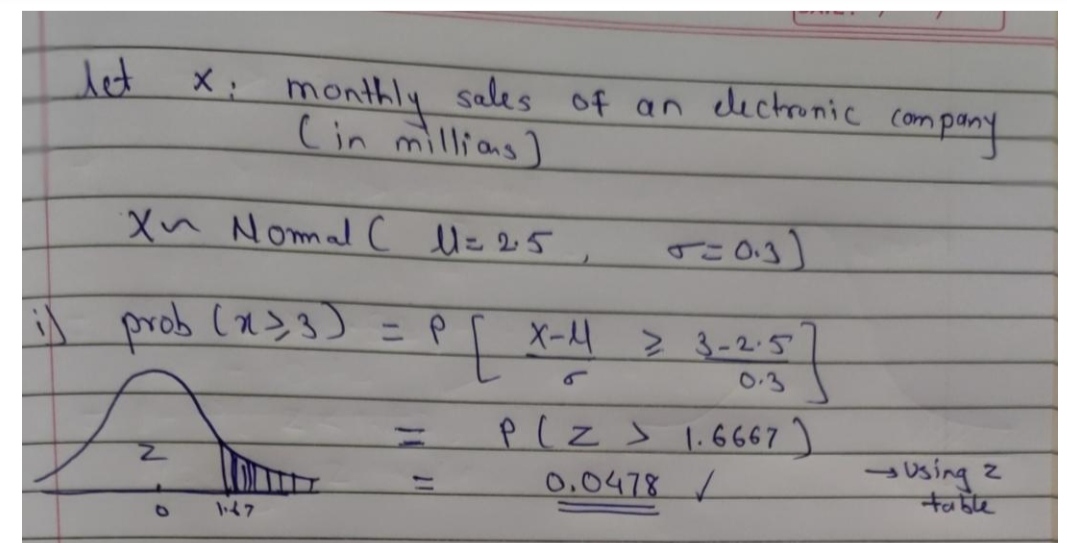 let x: monthly sales of an electronic company
(in millions)
X~ Normal ( μ= 2.5 , σ= 0.3)
i) prob (x⩾3) = P [ (X-μ)/σ ⩾ (3-2.5)/0.3 ]
= P ( Z > 1.6667 )
= 0.0478 ✓ → Using z table
Z
0 1.67